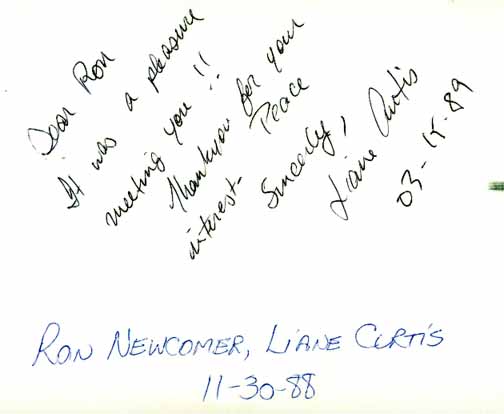 Dear Ron
It was a pleasure
meeting you!!
Thankyou for your
interest. Peace
Sincerely,
Liane Curtis
03-15-89
RON NEWCOMER, LIANE CURTIS
11-30-88